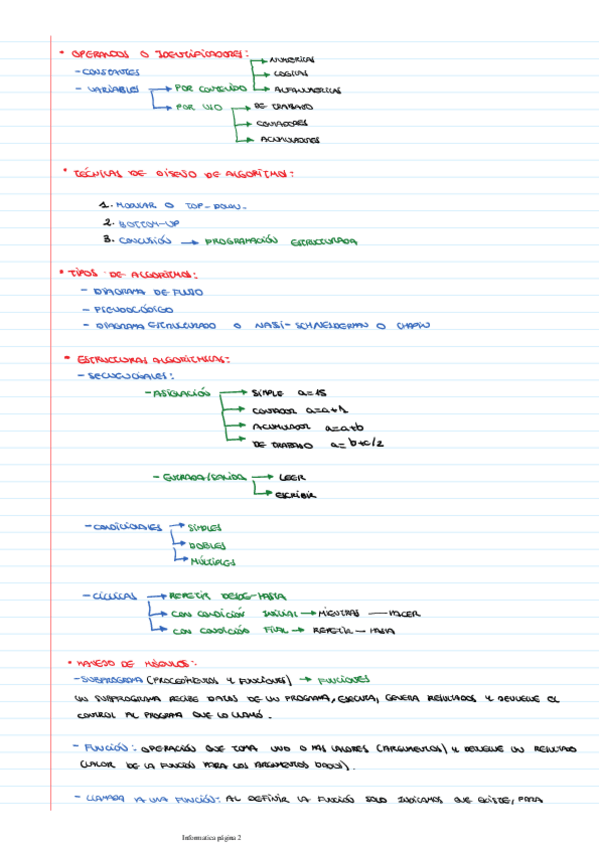 • OPERANDOS O IDENTIFICADORES:
- CONSTANTES
- VARIABLES → POR CONTENIDO → NUMÉRICAS
→ LÓGICAS
→ ALFANUMÉRICAS
→ POR USO → DE TRABAJO
→ CONTADORES
→ ACUMULADORES
• TÉCNICAS DE DISEÑO DE ALGORITMOS:
1. MODULAR O TOP-DOWN.
2. BOTTOM-UP
3. CONCLUSIÓN → PROGRAMACIÓN ESTRUCTURADA
• TIPOS DE ALGORITMOS:
- DIAGRAMA DE FLUJO
- PSEUDOCÓDIGO
- DIAGRAMA ESTRUCTURADO O NASSI-SCHNEIDERMAN O CHAPIN
• ESTRUCTURAS ALGORÍTMICAS:
- SECUENCIALES:
- ASIGNACIÓN → SIMPLE a=15
→ CONTADOR a=a+1
→ ACUMULADOR a=a+b
→ DE TRABAJO a=b+c/2
- ENTRADA/SALIDA → LEER
→ ESCRIBIR
- CONDICIONALES → SIMPLES
→ DOBLES
→ MÚLTIPLES
- CÍCLICAS → REPETIR DESDE-HASTA
→ CON CONDICIÓN INICIAL → MIENTRAS — HACER
→ CON CONDICIÓN FINAL → REPETIR — HASTA
• MANEJO DE MÓDULOS:
- SUBPROGRAMA (PROCEDIMIENTOS Y FUNCIONES) → FUNCIONES
UN SUBPROGRAMA RECIBE DATOS DE UN PROGRAMA, EJECUTA, GENERA RESULTADOS Y DEVUELVE EL
CONTROL AL PROGRAMA QUE LO LLAMÓ.
- FUNCIÓN: OPERACIÓN QUE TOMA UNO O MÁS VALORES (ARGUMENTOS) Y DEVUELVE UN RESULTADO
(VALOR DE LA FUNCIÓN PARA LOS ARGUMENTOS DADOS).
- LLAMADA A UNA FUNCIÓN: AL DEFINIR LA FUNCIÓN SOLO INDICAMOS QUE EXISTE, PARA
Informatica página 2